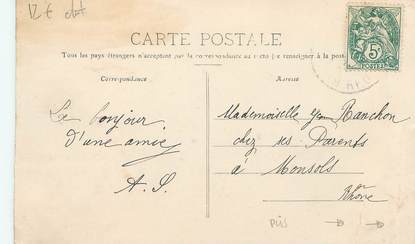 12 €
CARTE POSTALE
Tous les pays étrangers n'acceptant par la correspondance au recto (se renseigner à la poste)
Correspondance
Adresse
5
POSTES
Le bonjour
d'une amie
A. S.
Mademoiselle Ranchon
chez ses Parents
à Monsols
Rhône